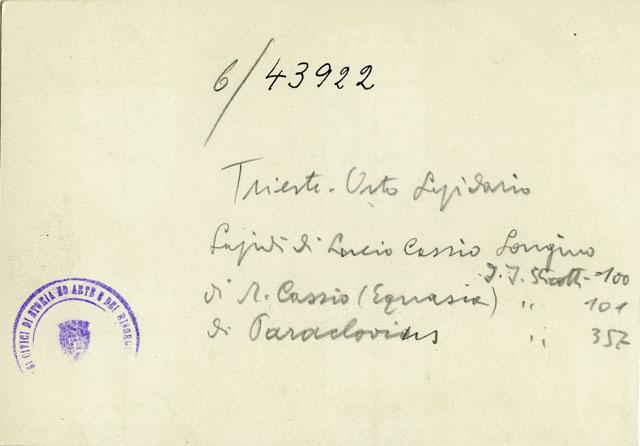 6/43922
Trieste - Orto Lapidario
Lapidi di Lucio Cassio Longino
I. I. 100
di Cassio (Equasia) " 101
di " 357
CIVICI DI STORIA ED ARTE E DEL RISORG